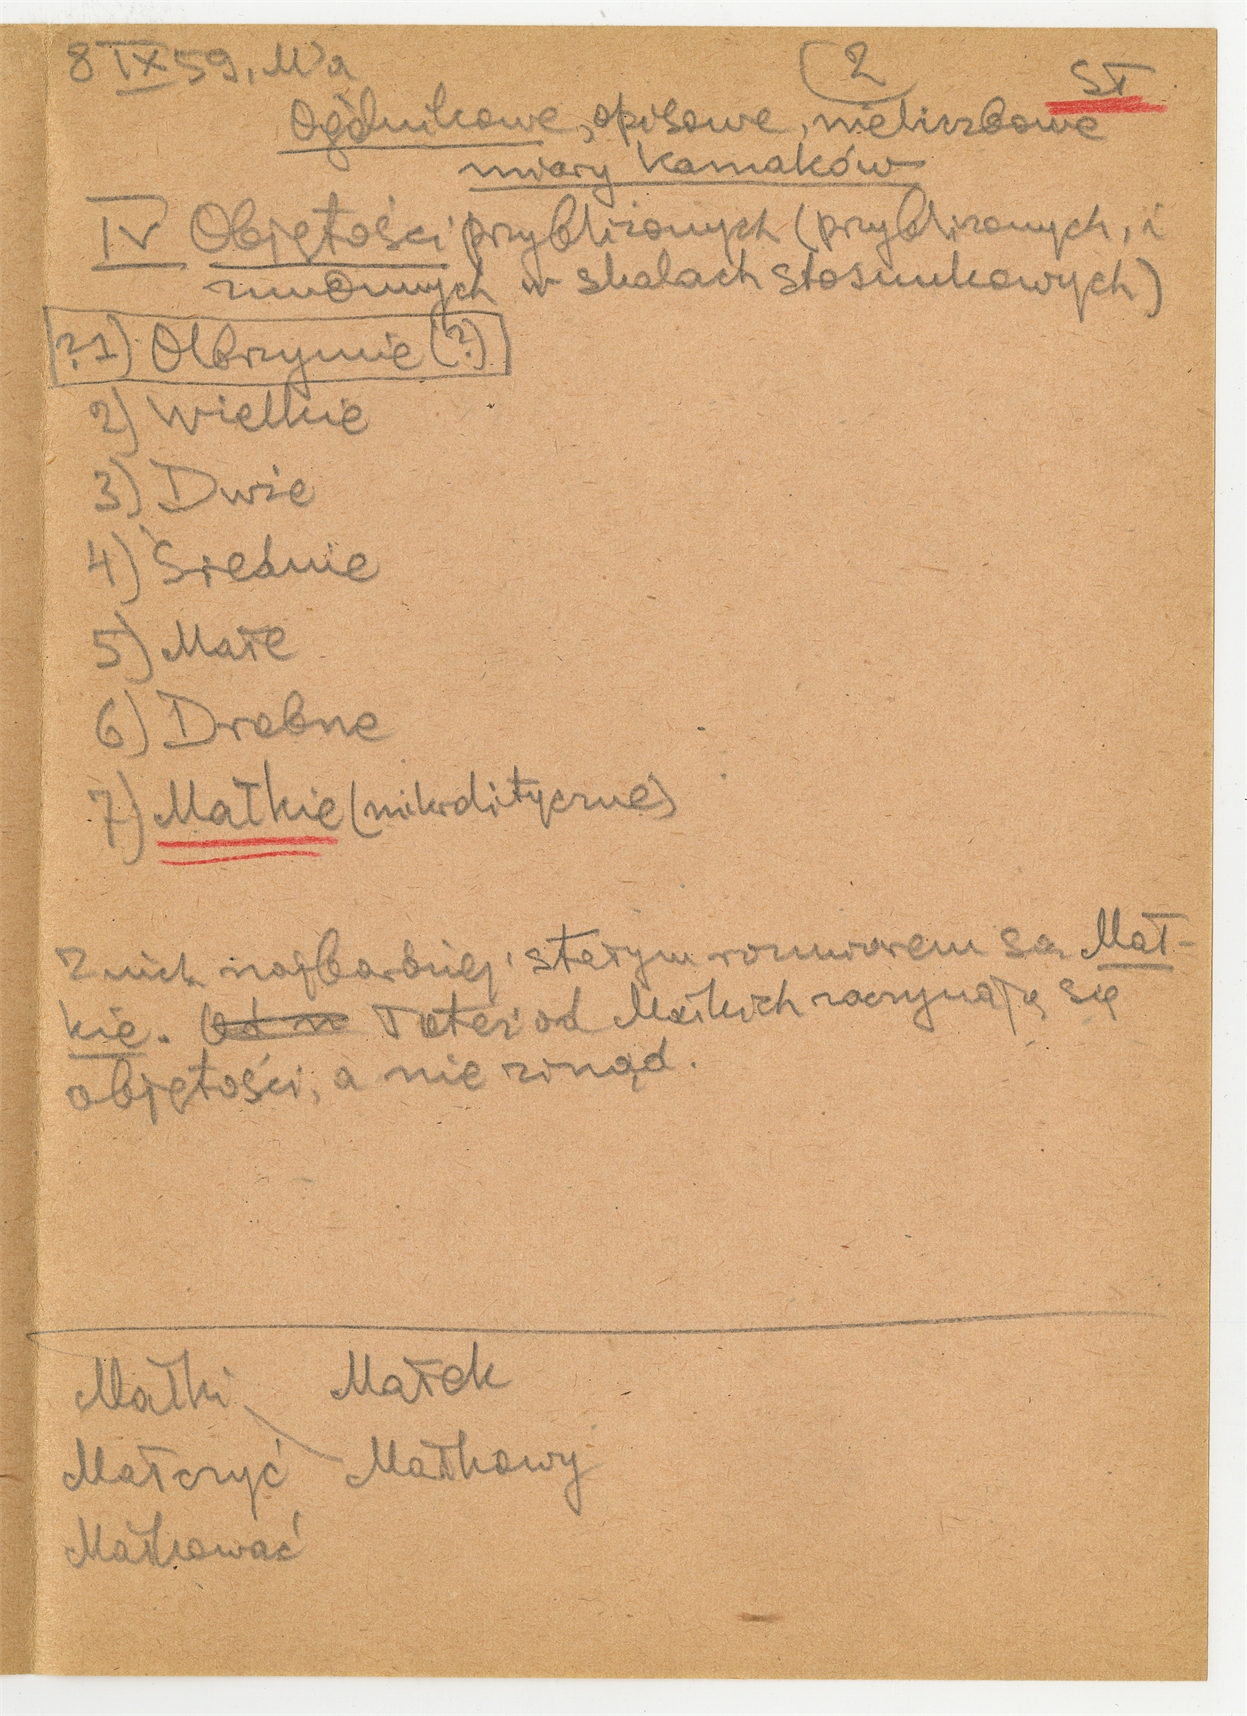 8 IX 59, W'a
2
ST
Ogólnikowe, opisowe, nieliczbowe
miary kamaków
IV Objętości przybliżonych (przybliżonych, i
zmiennych w skalach stosunkowych)
?1) Olbrzymie (?)
2) Wielkie
3) Duże
4) Średnie
5) Małe
6) Drobne
7) Małkie (mikrolityczne)
Z nich najbardziej stałym rozmiarem są Mał-
kie. Od Toteż od Małkich zaczynają się
objętości, a nie zinąd.
Małki Małek
Małczyć Małkowy
Małkować